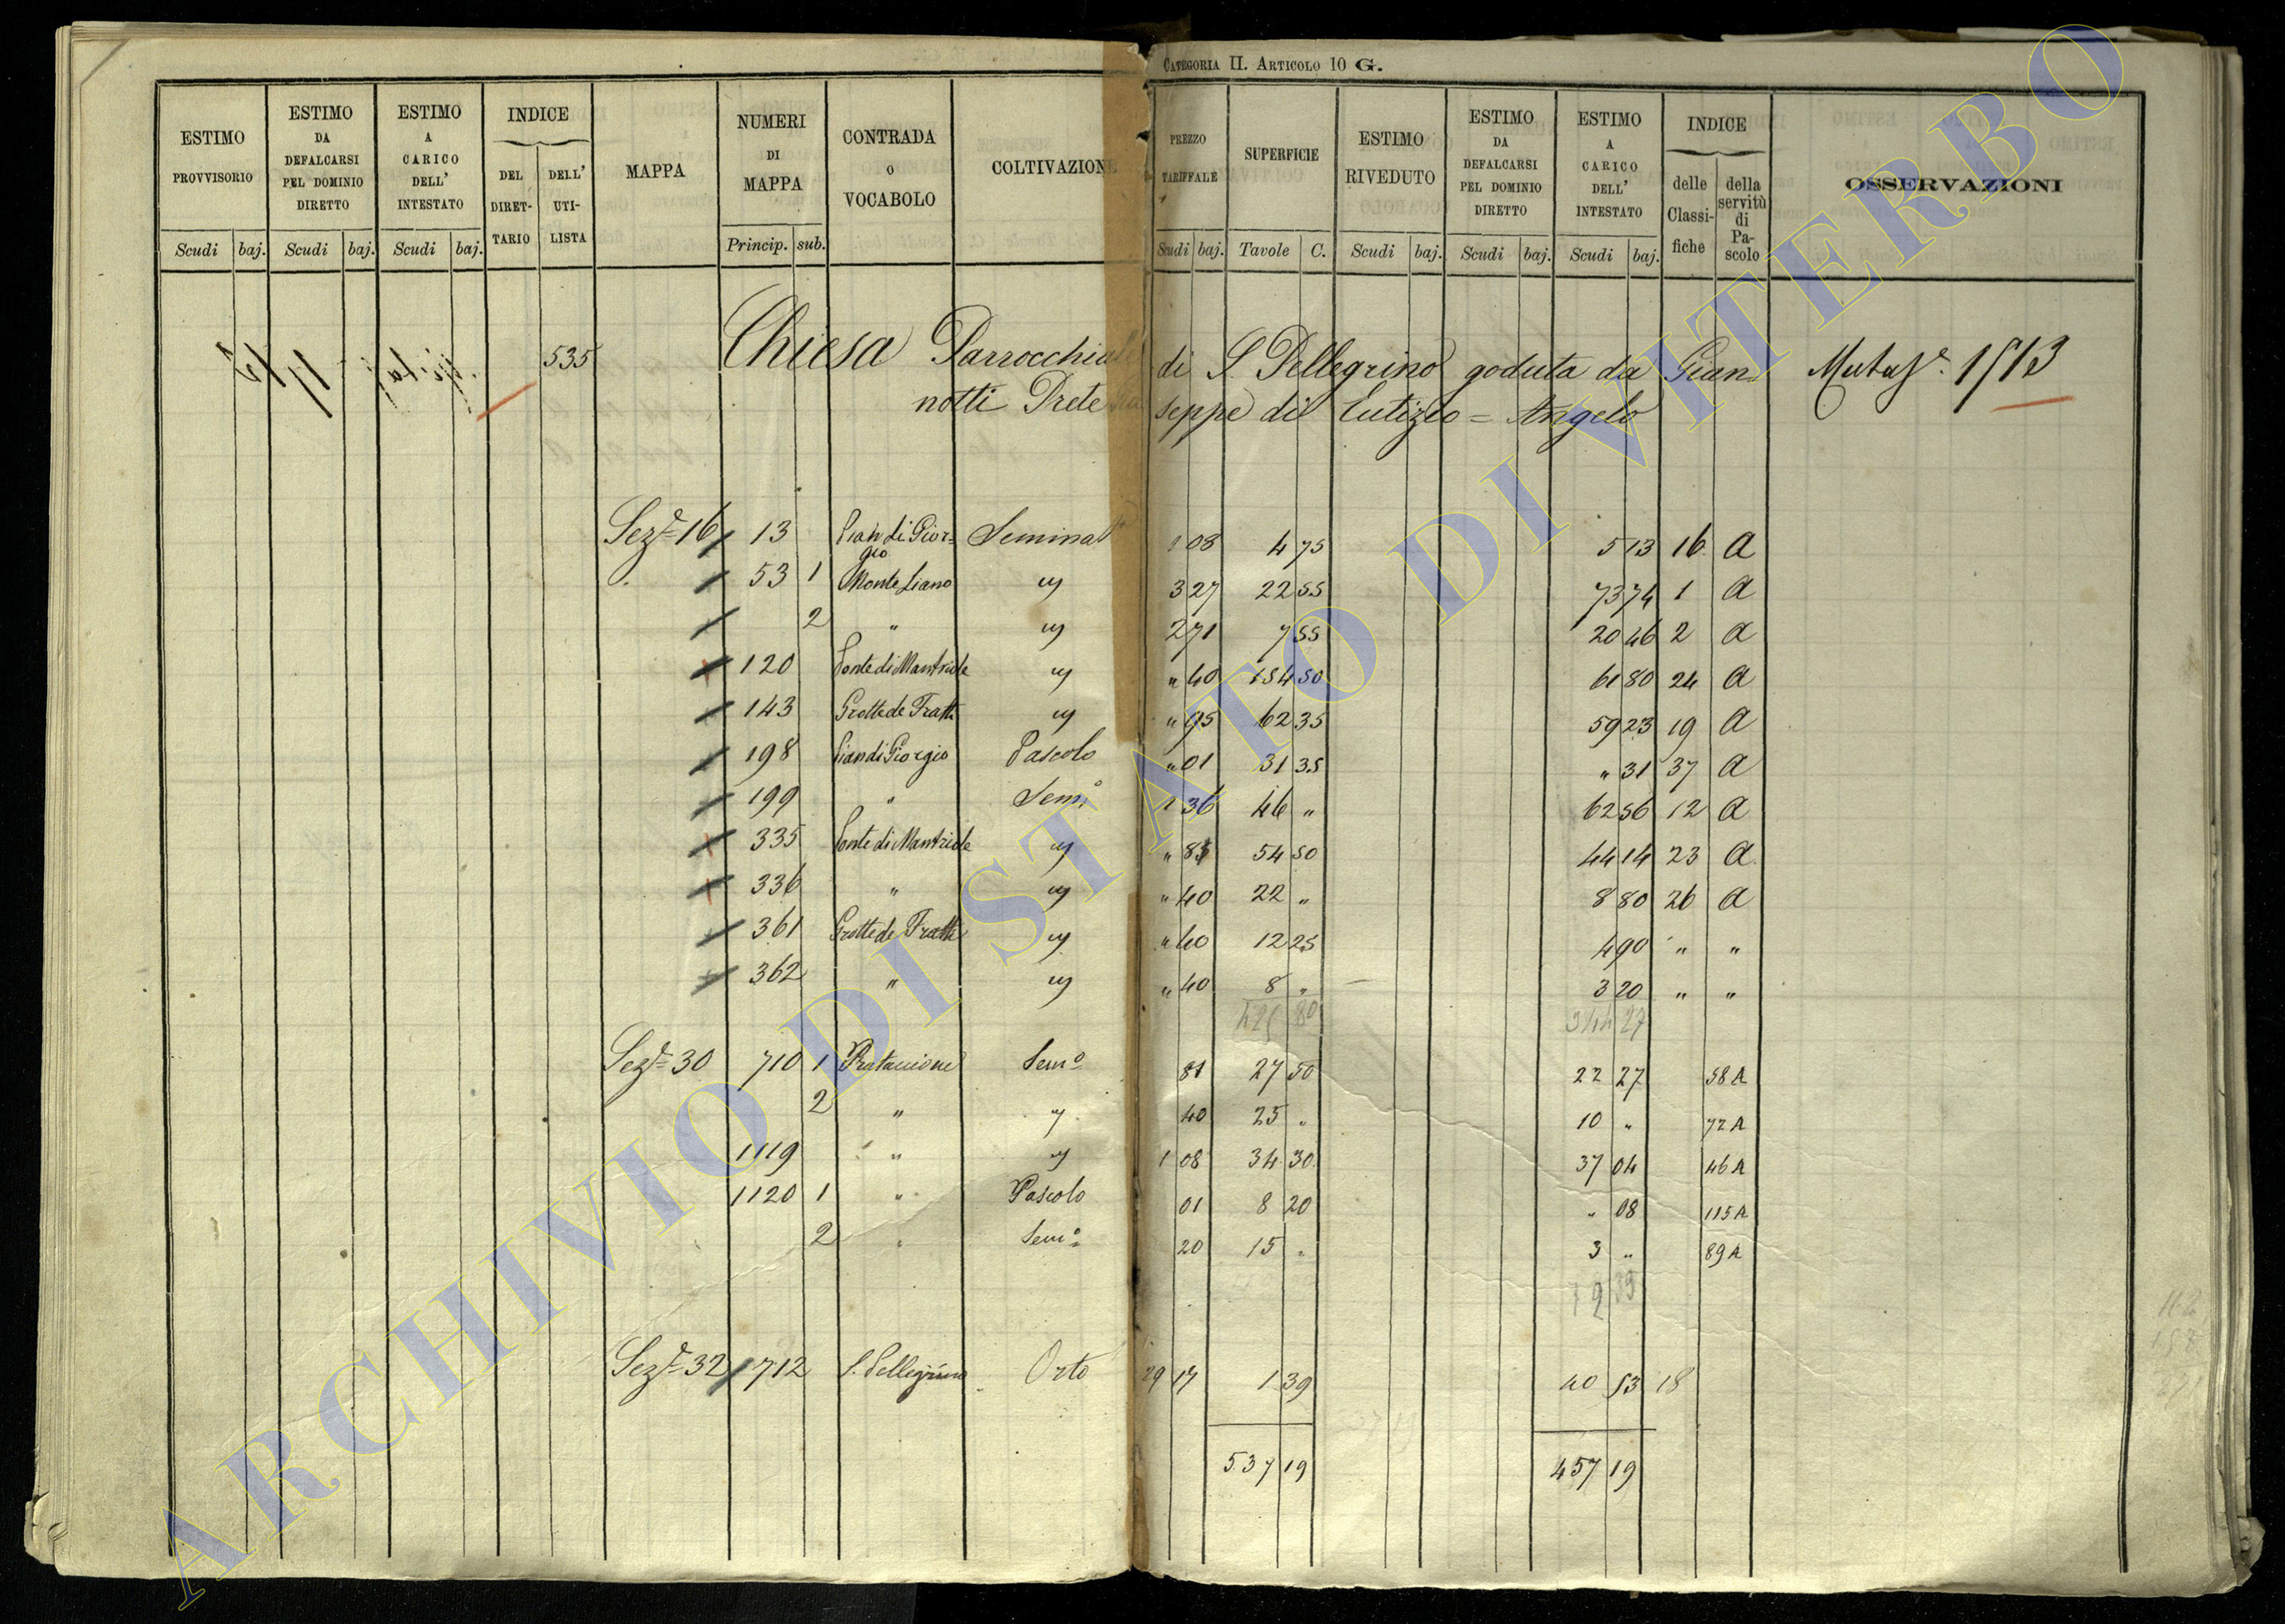 CATEGORIA II. ARTICOLO 10 G.
ESTIMO PROVVISORIO Scudi baj.
ESTIMO DA DEFALCARSI PEL DOMINIO DIRETTO Scudi baj.
ESTIMO A CARICO DELL' INTESTATO Scudi baj.
INDICE DEL DIRET-TARIO DELL' UTI-LISTA
MAPPA
NUMERI DI MAPPA Princip. sub.
CONTRADA O VOCABOLO
COLTIVAZIONE
PREZZO TARIFFALE Scudi baj.
SUPERFICIE Tavole C.
ESTIMO RIVEDUTO Scudi baj.
ESTIMO DA DEFALCARSI PEL DOMINIO DIRETTO Scudi baj.
ESTIMO A CARICO DELL' INTESTATO Scudi baj.
INDICE delle Classi-fiche della servitù di Pa-scolo
OSSERVAZIONI
535 Chiesa Parrocchiale di S. Pellegrino goduta da Gian Mutaz.e 1513
notti Prete seppe di Eutizio = Angelo
Sez.e 16 13 Pian di Gior-gio Seminat 1 08 4 75 5 13 16 A
53 1 Monte Liano " 3 27 22 55 73 74 1 A
2 " " 2 71 7 55 20 46 2 A
120 Fonte di Mantriole " " 40 154 50 61 80 24 A
143 Grotte de Fratti " " 95 62 35 59 23 19 A
198 Pian di Giorgio Pascolo " 01 31 35 " 31 37 A
199 " Sem.o 1 36 46 " 62 56 12 A
335 Fonte di Mantriole " " 81 54 50 44 14 23 A
336 " " " 40 22 " 8 80 26 A
361 Grotte de Fratti " " 40 12 25 4 90 " "
362 " " " 40 8 " 3 20 " "
425 80 344 27
Sez.e 30 710 1 Pratacione Sem.o 81 27 50 22 27 58 A
2 " " 40 25 " 10 " 72 A
1119 " " 1 08 34 30 37 04 46 A
1120 1 " Pascolo 01 8 20 " 08 115 A
2 " Sem.o 20 15 " 3 " 89 A
72 39
Sez.e 32 712 S. Pellegrino Orto 29 17 1 39 40 53 18
537 19 457 19
ARCHIVIO DI STATO DI VITERBO